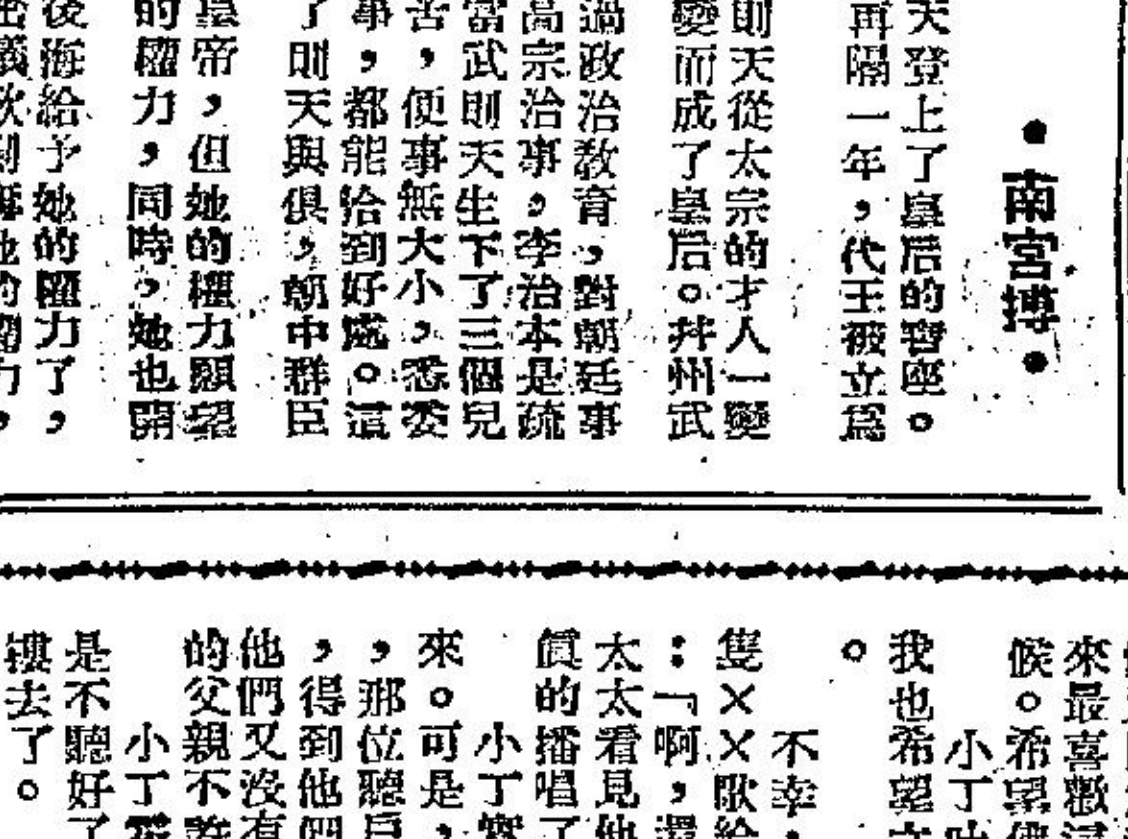 •南宮搏•
天登上了皇后的寶座。
再隔一年，代王被立爲
則天從太宗的才人一變
變而成了皇后。幷州武
過政治教育，對朝廷事
高宗治事，李治本是疏
當武則天生下了三個兒
苦，便事無大小，悉委
事，都能恰到好處。這
了則天與俱，朝中群臣
皇帝，但她的權力願望
的權力，同時，她也開
後海給予她的權力了，
來最喜歡
候。希望
小丁
我也希望
。
不幸，
隻××歌給
：「啊，還
太太看見他
價的播唱了
小丁實
來。可是，
，那位聽戶
，得到他們
他們又沒有
的父親不許
小丁
是不聽好了
摟去了。